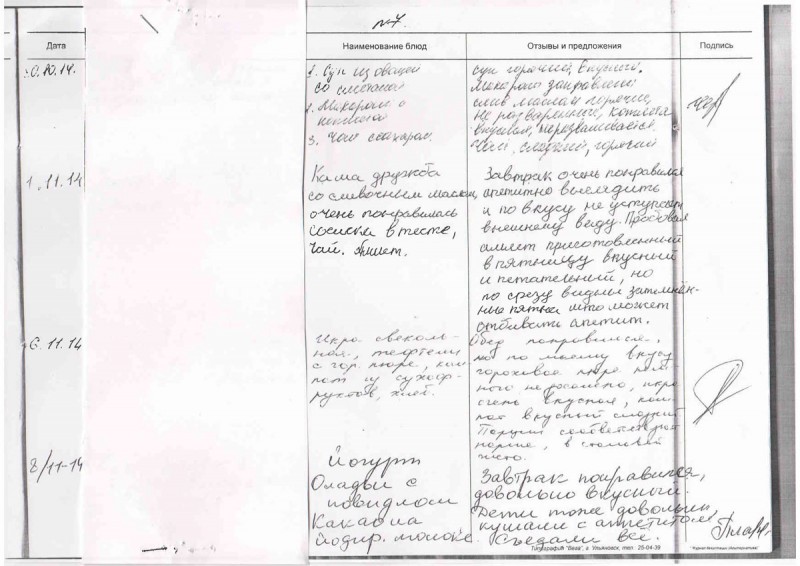 №7.
Дата
Наименование блюд
Отзывы и предложения
Подпись
0.10.14.
2. Суп из овощей
со сметаной
1. Макароны с
котлетой
3. Чай с сахаром.
суп горячий, вкусный.
Макароны заправлены
слив маслом горячие,
не разваренные, котлета
вкусная,
Чай сладкий, горячий
1.11.14
Каша дружба
со сливочным маслом,
очень понравилась
сосиски в тесте,
Чай. Амлет.
Завтрак очень понравился
апетитно выглядить
и по вкусу не уступает
внешнему виду. Пробовая
амлет приготовленный
в пятницу вкусный
и петательный, но
по срезу видны затемнён-
ные пятна што может
отбивать апетит.
6.11.14
Икра свеколь-
ная, тефтели
с гор. пюре, ком-
пот из сухоф-
руктов, хлеб.
Обед понравился,
но по моему вкусу
гороховое пюре нем-
ного не посолено, икра
очень вкусная, ком-
пот вкусный сладкий
Порции соответствуют
норме, в столовой
чисто.
8/11-14
Йогурт
Оладьи с
повидлом
Какао на
йодир. молоке.
Завтрак понравился,
довольно вкусный.
Дети тоже довольны,
кушали с аппетитом,
Съедали все.
Типография "Вега", г. Ульяновск, тел. 25-04-39